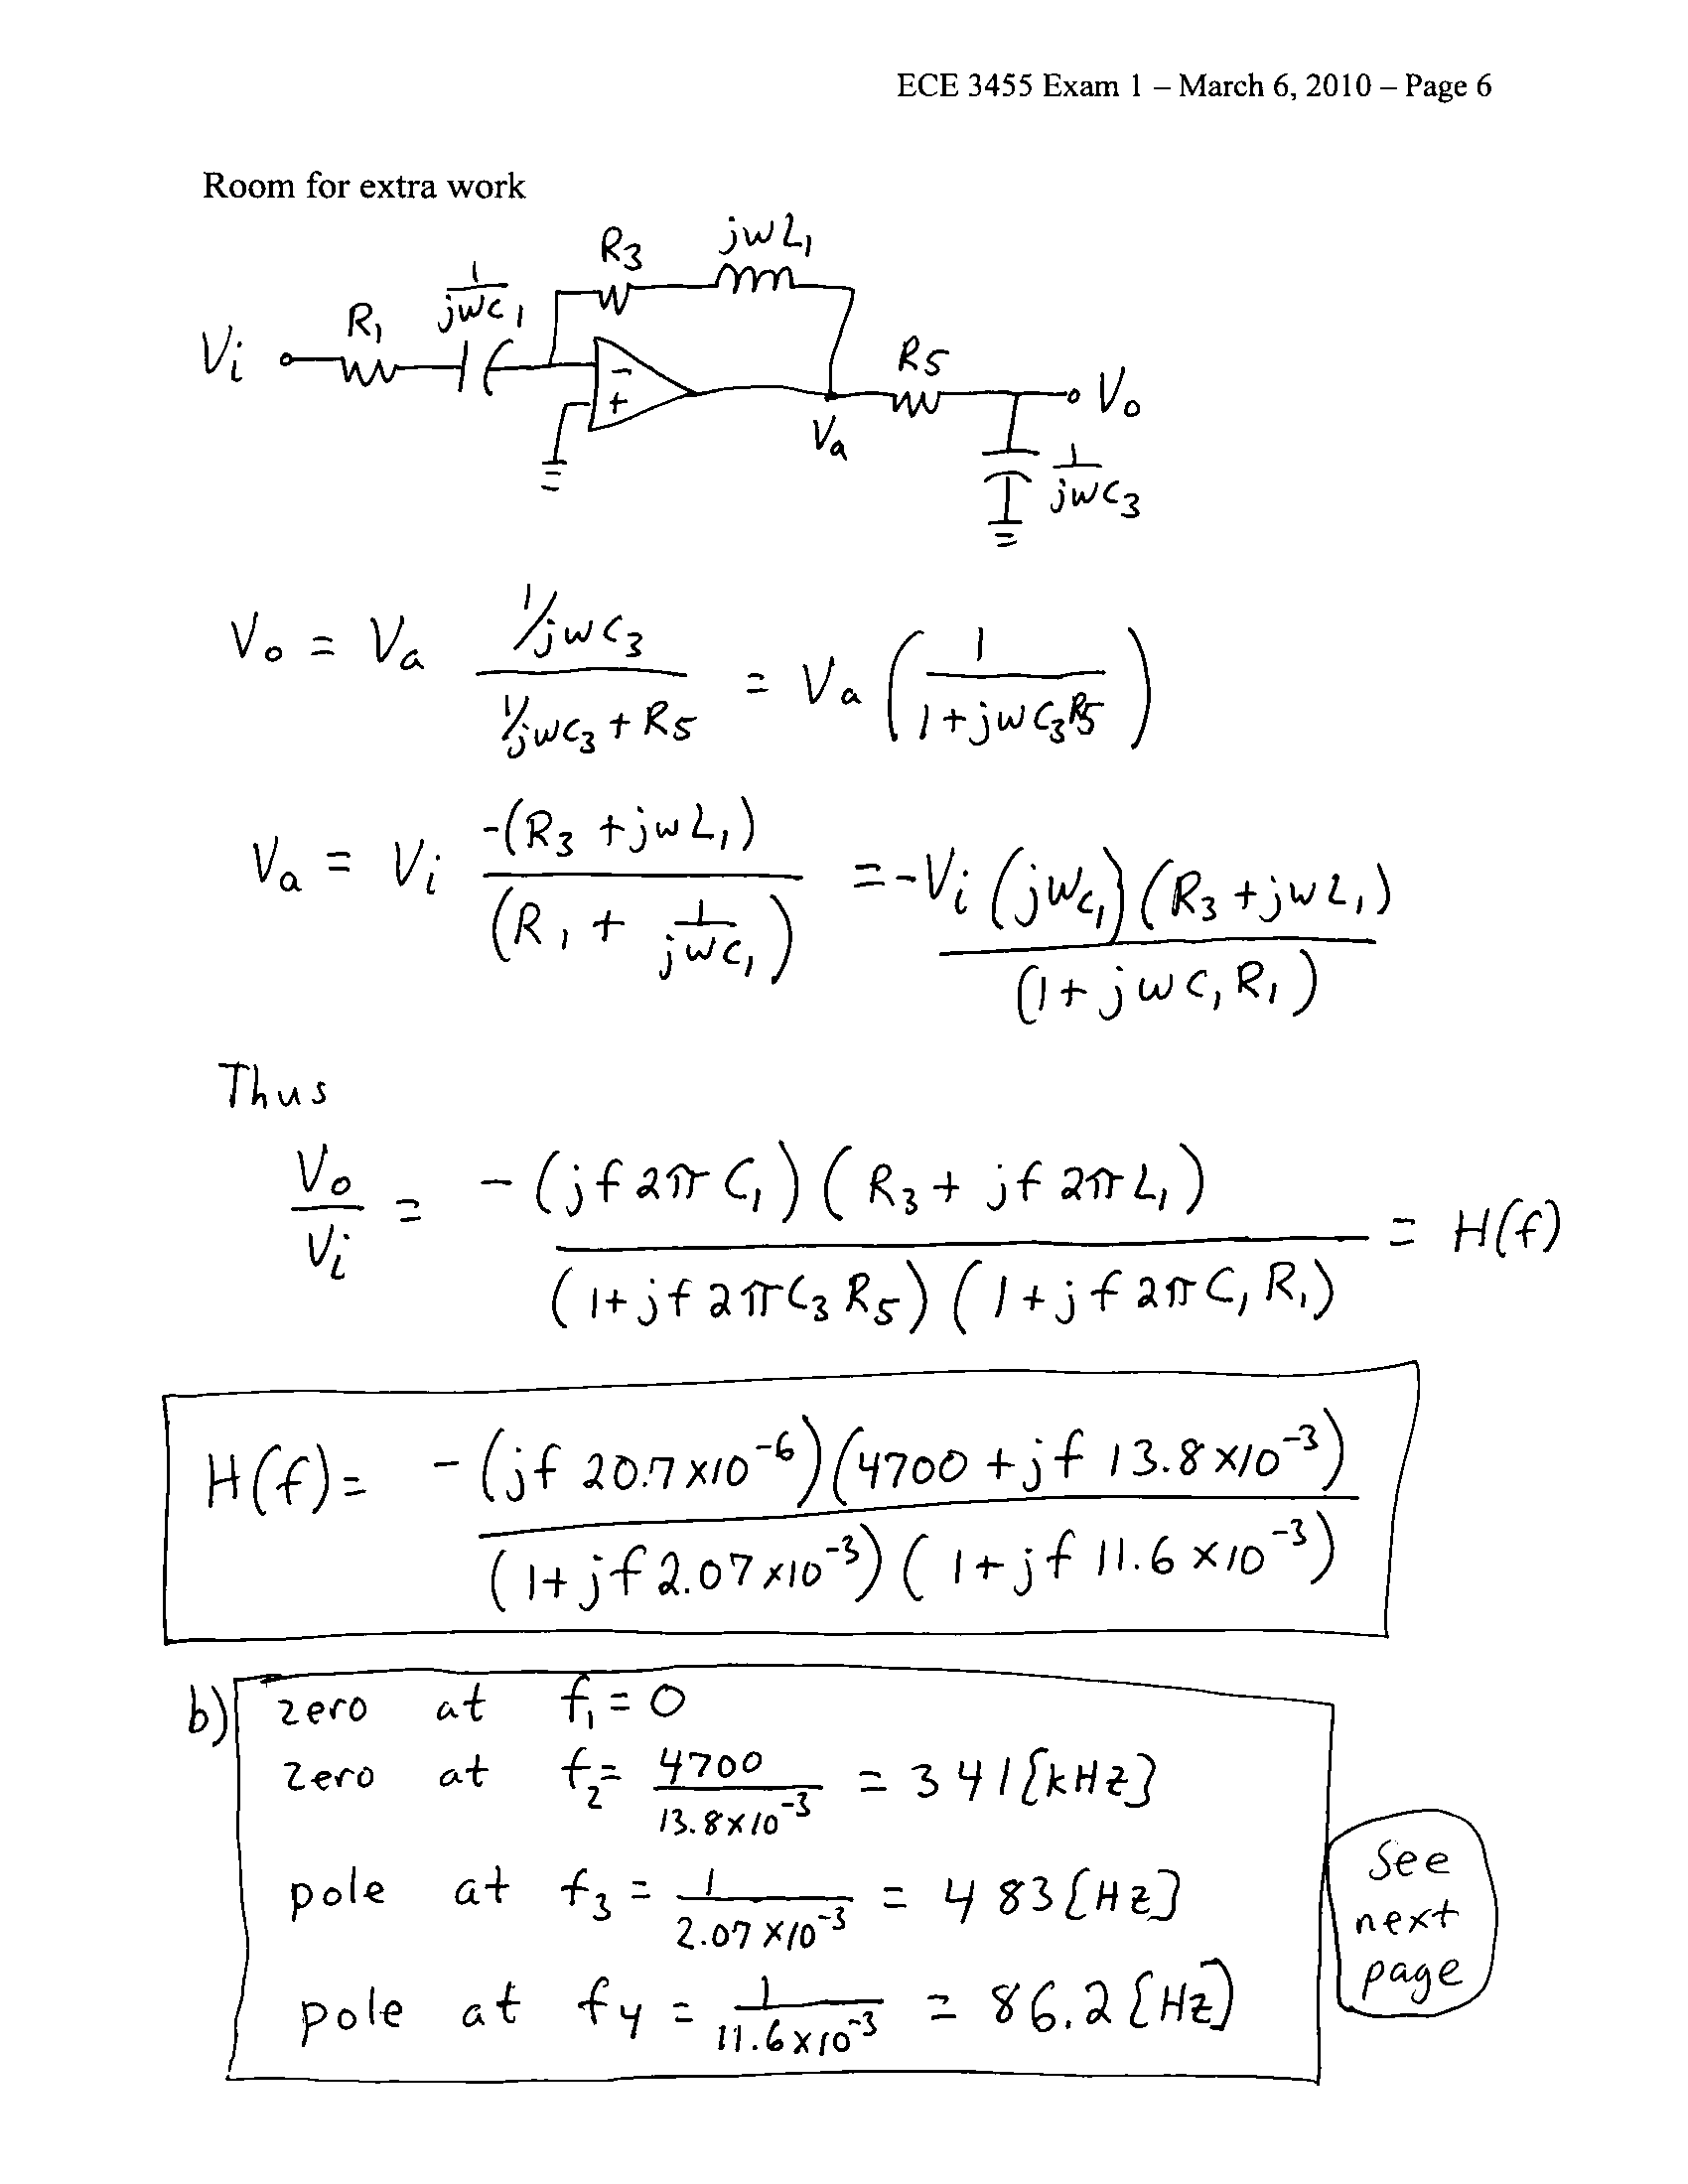 ECE 3455 Exam 1 – March 6, 2010 – Page 6
Room for extra work
R3 jωL1
1/jωC1
R1
Vi
R5
Vo
- +
Va
1/jωC3
Vo = Va (1/jωC3)/(1/jωC3 + R5) = Va (1/(1+jωC3R5))
Va = Vi -(R3 + jωL1)/(R1 + 1/jωC1) = -Vi (jωC1)(R3 + jωL1)/(1+jωC1R1)
Thus
Vo/Vi = -(jf2πC1)(R3 + jf2πL1)/((1+jf2πC3R5)(1+jf2πC1R1)) = H(f)
H(f) = -(jf 20.7x10^-6)(4700 + jf 13.8x10^-3)/((1+jf 2.07x10^-3)(1+jf 11.6x10^-3))
b) zero at f1 = 0
zero at f2 = 4700/(13.8x10^-3) = 341[kHz]
pole at f3 = 1/(2.07x10^-3) = 483[Hz]
pole at f4 = 1/(11.6x10^-3) = 86.2[Hz]
See
next
page